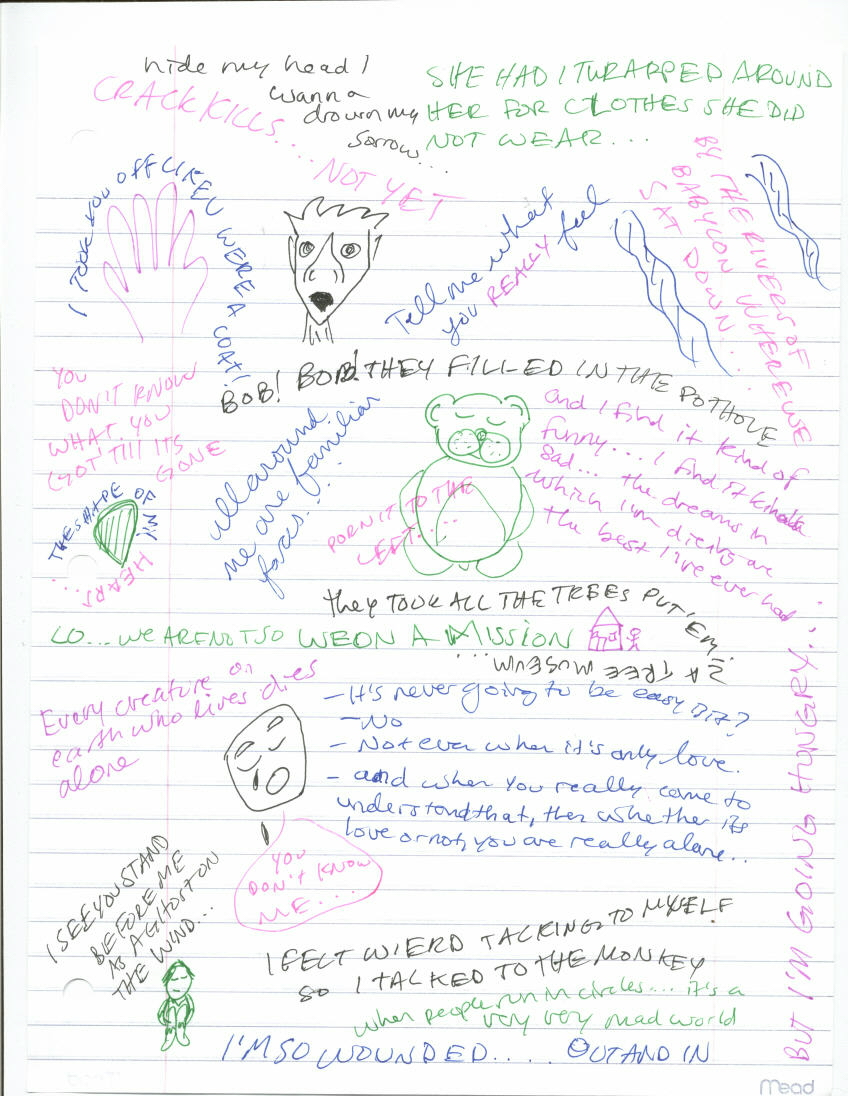 hide my head I
wanna
drown my
sorrow...
CRACK KILLS....
NOT YET
SHE HAD IT WRAPPED AROUND
HER FOR CLOTHES SHE DID
NOT WEAR...
BY THE RIVERS OF
BABYLON WHERE WE
SAT DOWN...
I TOOK YOU OFF LIKE U WERE A COAT!
Tell me what
you REALLY feel
BOB! BOB! THEY FILLED IN THE POTHOLE
YOU
DON'T KNOW
WHAT YOU
GOT TILL ITS
GONE
all around
me are familiar
faces...
and I find it kind of
funny.... I find it kinda
sad... the dreams in
which I'm dieing are
the best I've ever had
PORN IT TO THE
LEFT....
THE SHAPE OF MY
HEART...
they TOOK ALL THE TREES PUT 'EM
IN A TREE MUSEUM...
LO... WE ARE NOT SO WE ON A MISSION
Every creature on
earth who lives dies
alone
- It's never going to be easy
- No
- Not even when it's only love.
- and when you really come to
understand that, then whether its
love or not, you are really alone..
YOU
DON'T KNOW
ME...
BUT I'M GOING HUNGRY...
I SEE YOU STAND
BEFORE ME
AS A GHOST ON
THE WIND...
I FELT WIERD TALKING TO MYSELF
SO I TALKED TO THE MONKEY
when people run in circles... it's a
very very mad world
I'M SO WOUNDED.... OUT AND IN
Mead